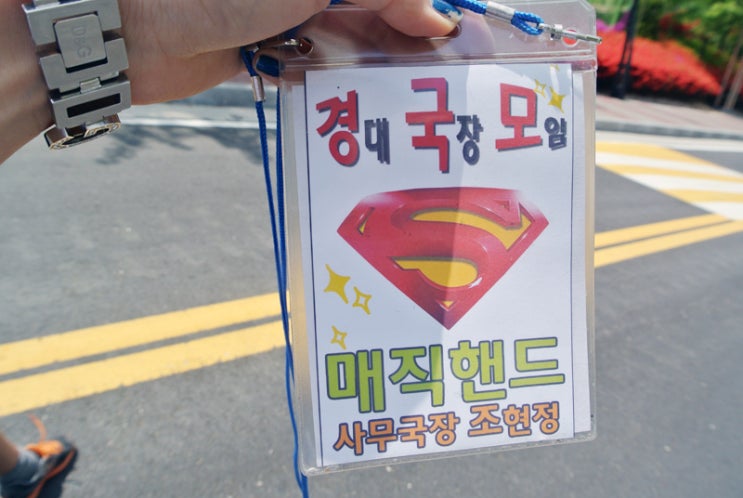 D&G
경대 국장 모임
S
매직핸드
사무국장 조현정